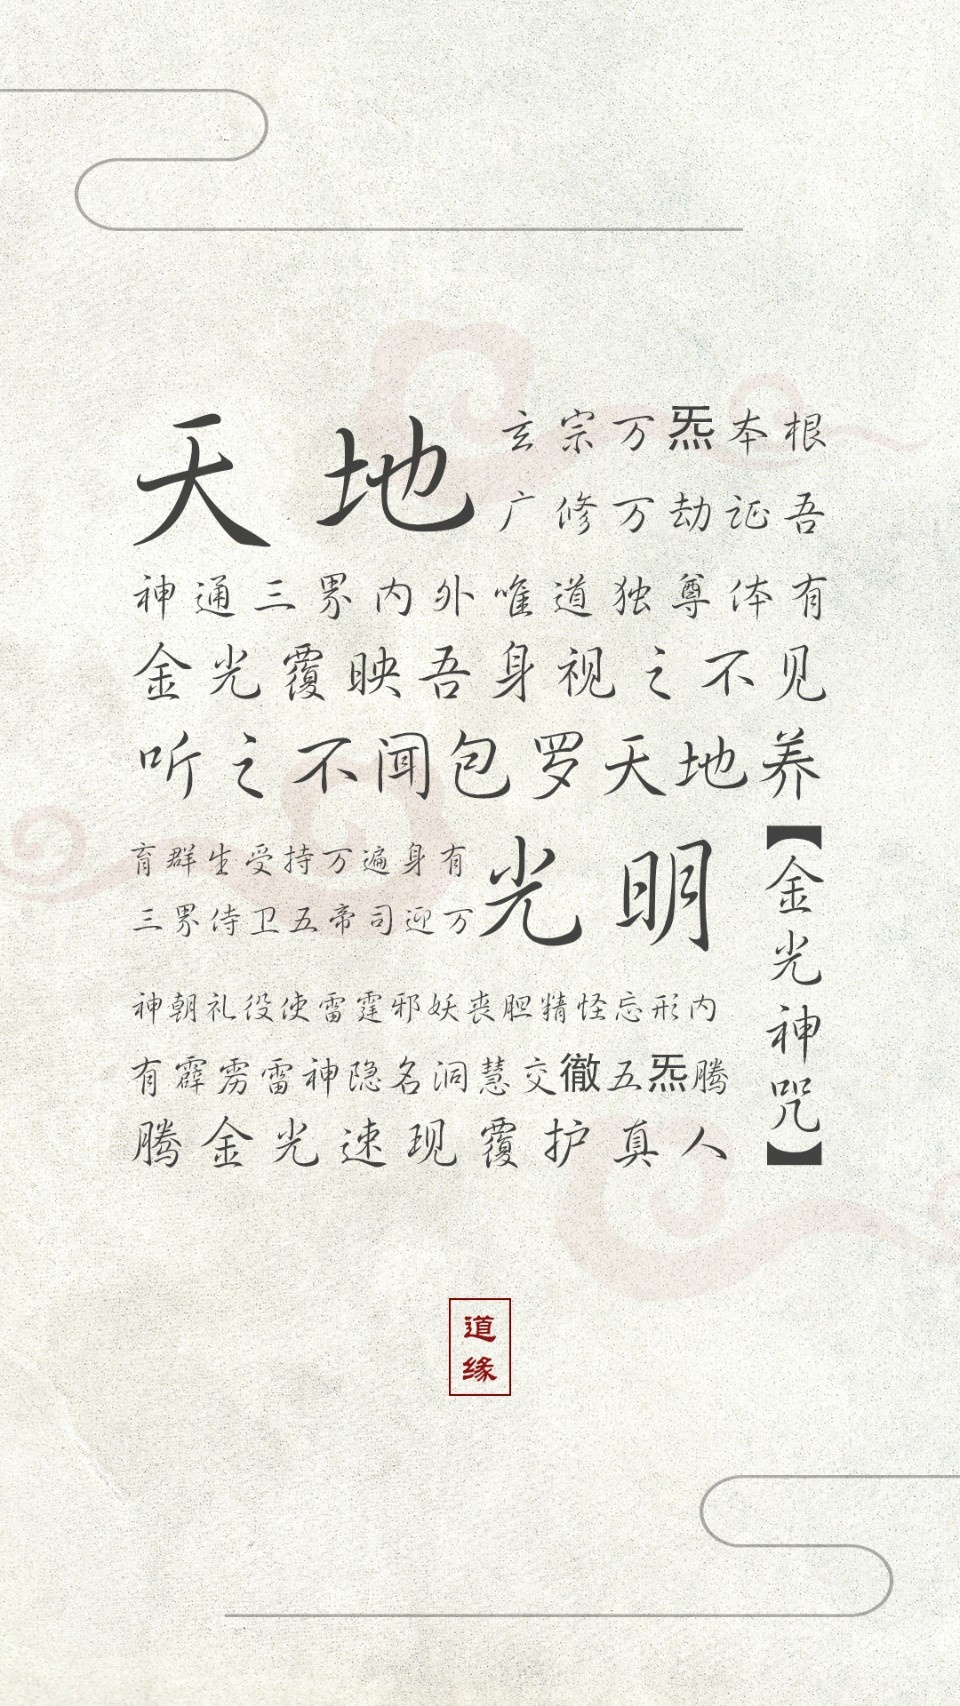 天地
玄宗万炁本根
广修万劫证吾
神通三界内外唯道独尊体有
金光覆映吾身视之不见
听之不闻包罗天地养
育群生受持万遍身有
三界侍卫五帝司迎万
光明
神朝礼役使雷霆邪妖丧胆精怪忘形内
有霹雳雷神隐名洞慧交徹五炁腾
腾金光速现覆护真人
【金光神咒】
道
缘